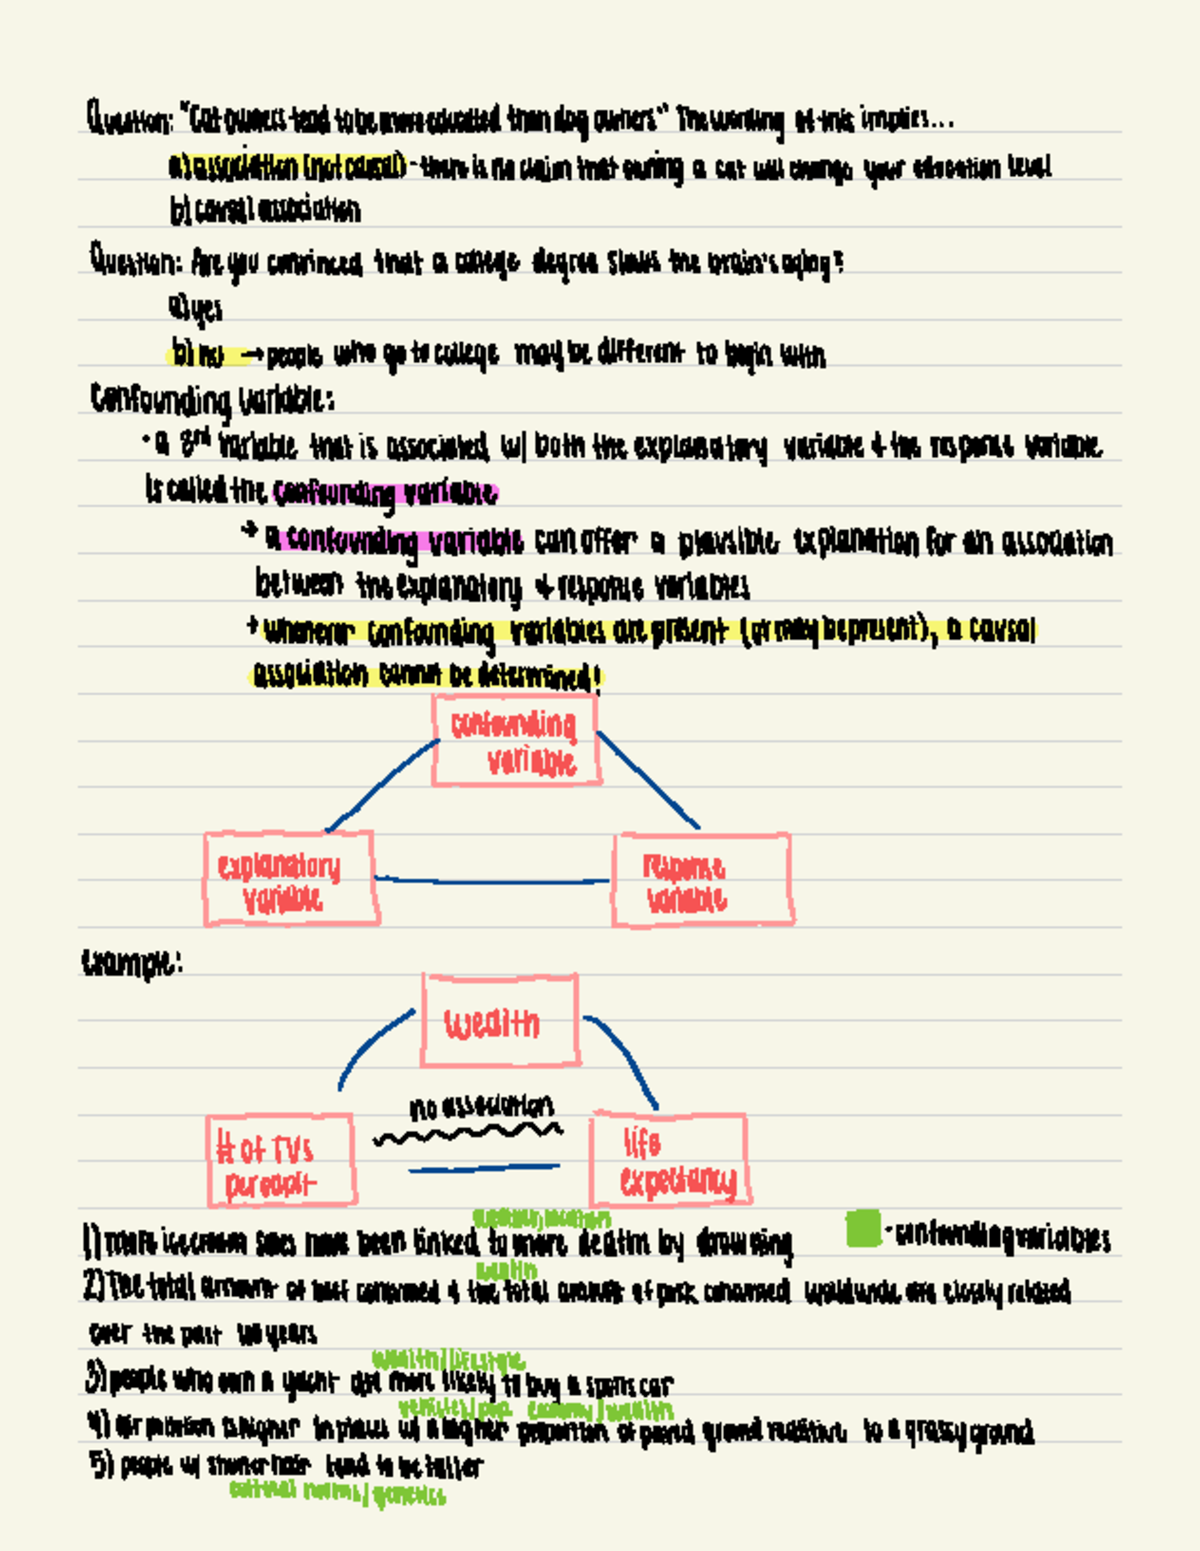 Question: "Cat owners tend to be more educated than dog owners" The wording of this implies...
a) association (not causal) - there is no claim that owning a cat will change your education level
b) causal association
Question: Are you convinced that a college degree slows the brain's aging?
a) yes
b) no → people who go to college may be different to begin with
Confounding Variable:
· a 3rd variable that is associated w/ both the explanatory variable + the response variable
is called the confounding variable
→ a confounding variable can offer a plausible explanation for an association
between the explanatory + response variables
→ whenever confounding variables are present (or may be present), a causal
association cannot be determined!
confounding
variable
explanatory
variable
response
variable
Example:
wealth
no association
# of TVs
per capit
life
expectancy
weather, location
1) more icecream sales have been linked to more deaths by drowning
- confounding variables
wealth
2) The total amount of beef consumed + the total amount of pork consumed worldwide are closely related
over the past years
wealth/lifestyle
3) people who own a yacht are more likely to buy a sports car
vehicles/pop. economy/wealth
4) air pollution is higher in places w/ a higher proportion of paved ground relative to a grassy ground
5) people w/ shorter hair tend to be taller
cultural norms/genetics